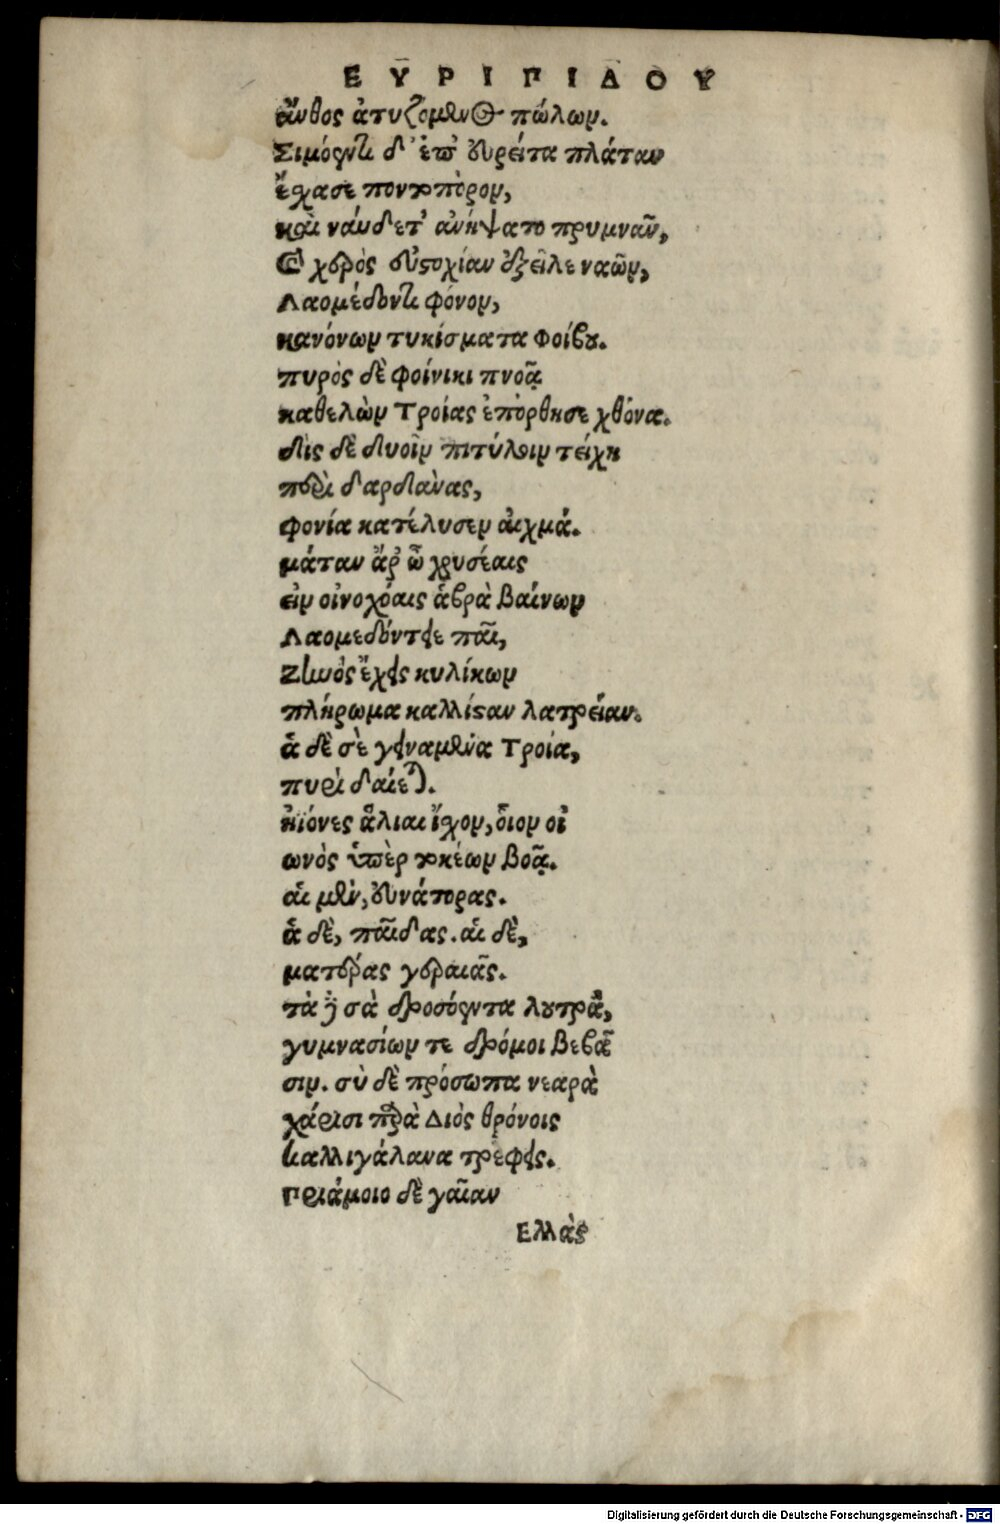 ΕΥΡΙΠΙΔΟΥ
ἄνθος ἀτυζόμενος πώλων.
Σιμόεντι δ' ἐπ' εὐρείτα πλάταν
ἔσχασε ποντοπόρον,
καὶ ναύδετ' ἀνήψατο πρυμνᾶν,
καὶ χερὸς εὐστοχίαν ἐξεῖλε ναῶν,
Λαομέδοντι φόνον,
κανόνων τυκίσματα Φοίβου.
πυρὸς δὲ φοίνικι πνοᾷ
καθελὼν Τροίας ἐπόρθησε χθόνα.
δὶς δὲ δυοῖν πιτύλοιν τείχη
περὶ δαρδάνας,
φονία κατέλυσεν αἰχμά.
μάταν ἄρ' ὦ χρυσέαις
ἐν οἰνοχόαις ἁβρὰ βαίνων
Λαομεδόντειε παῖ,
Ζηνὸς ἔχεις κυλίκων
πλήρωμα καλλίσταν λατρείαν.
ἁ δὲ σὲ γειναμένα Τροία,
πυρὶ δαίεται.
ἠϊόνες ἅλιαι ἴαχον, οἷον οἰ
ωνὸς ὑπὲρ τοκέων βοᾷ.
αἱ μὲν, εὐνάτορας.
ἁ δὲ, παῖδας. αἱ δὲ,
ματέρας γεραιάς.
τὰ δὲ σὰ δροσόεντα λουτρὰ,
γυμνασίων τε δρόμοι βεβᾶ
σιν. σὺ δὲ πρόσωπα νεαρὰ
χάρισι παρὰ Διὸς θρόνοις
καλλιγάλανα τρέφεις.
Πριάμοιο δὲ γαῖαν
Ελλὰς
Digitalisierung gefördert durch die Deutsche Forschungsgemeinschaft - DFG